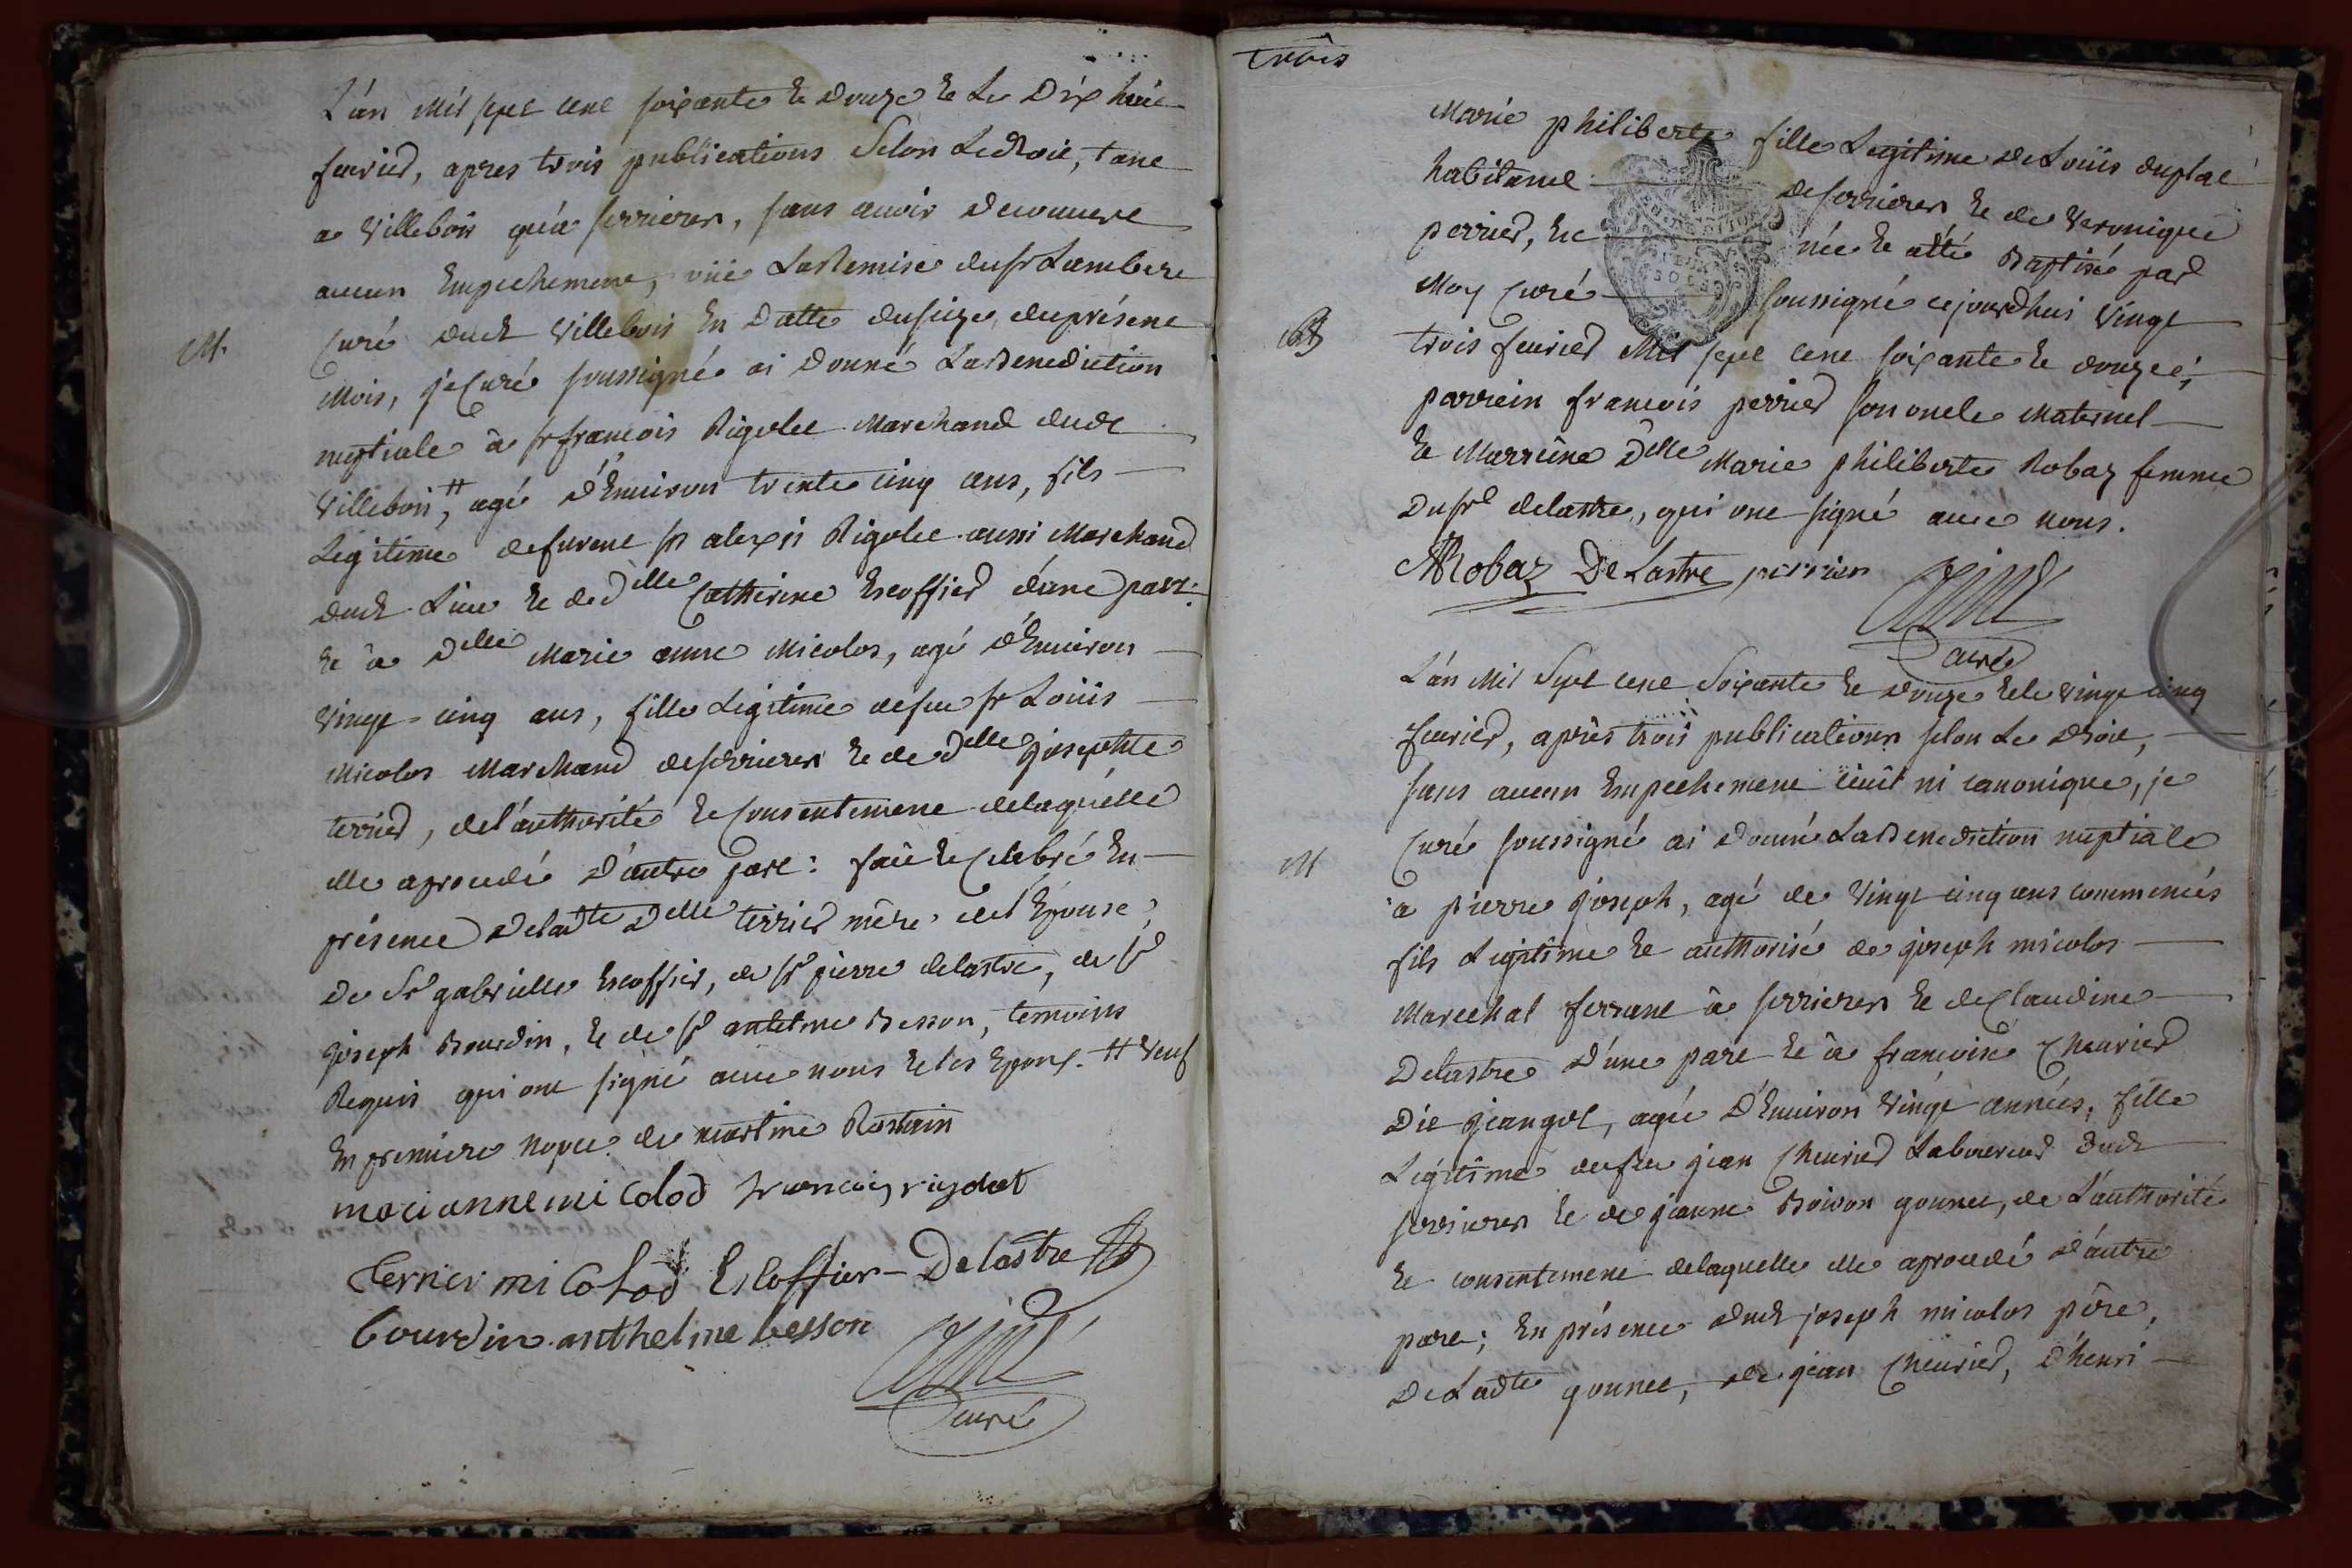 L'an mil sept cent soixante et douze et le dix huit
fevrier, apres trois publications selon le droit, tant
a Villebois qu'a serrieres, sans avoir decouvert
aucun Empechement, vüe la Remise du sr Lambert
curé dudt Villebois en datte du seize du présent
M.
mois, je curé soussigné ai donné la Benediction
nuptiale à sr françois Rigolet Marchand dudt
Villebois, # agé d'Environ trente cinq ans, fils
Legitime de furent sr alexis Rigolet aussi Marchand
dudt Lieu et de dlle Catherine Escoffier d'une part:
et à Delle Marie anne Micolos, agé d'Environ
vingt-cinq ans, fille Legitime de feu sr Loüis
Micolos Marchand de serrieres et de delle josephte
terrier, de l'authorité et consentement de laquelle
elle a procedé d'autre part: fait et celebré En
présence de ladte delle terrier mère de l'Epouse,
De Sr gabrielle Escoffier, de sr pierre delastre, de sr
joseph Bourdin, et de sr antelme Besson, temoins
Requis qui ont signé avec nous et les Epoux. # veuf
En premiere nopce de martine Rostain
marianne micolod francois rigolat
terrier micolod Escoffier Delastre
bourdin anthelme besson
curé
trois
Marie philiberte fille Legitime de Loüis duplat
habitant de serrieres et de veronique
perrier, Est née et a été Baptisé par
Moy curé soussigné cejourdhui vingt
B
trois fevrier Mil sept cent soixante et douze;
parrein francois perrier son oncle Maternel
et Marreine Delle Marie philiberte Robaz femme
Du sr delastre, qui ont signé avec nous.
MRobaz De Lastre perrier
curé
L'an Mil Sept cent Soixante et douze et le vingt cinq
fevrier, après trois publications selon le droit,
sans aucun Empechement civil ni canonique, je
curé soussigné ai donné la Benediction nuptiale
M
à pierre joseph, agé de vingt cinq ans commencés
fils Legitime et authorisé de joseph micolos
Marechal ferrant à serrieres et de claudine
Delastre d'une part et à francoise chevrier
Dit jeangot, agée d'Environ vingt années, fille
Legitime de feu jean chevrier Laboureur dudt
serrieres et de jeanne Boivon gonnet, de L'authorité
et consentement de laquelle elle a procedé d'autre
part; En présence dudt joseph micolos père,
De Ladte gonnet, de jean chevrier, d'henri